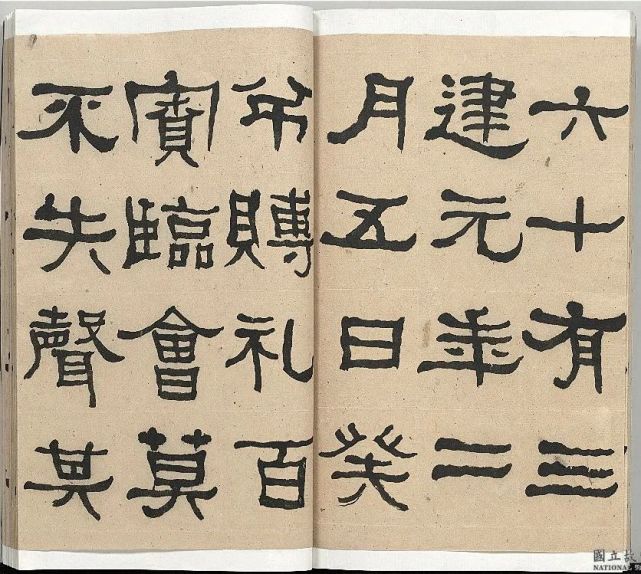 六十有三
建元年二
月五日癸
弔賻礼百
賓臨會莫
不失聲其
國立故
NATIONAL